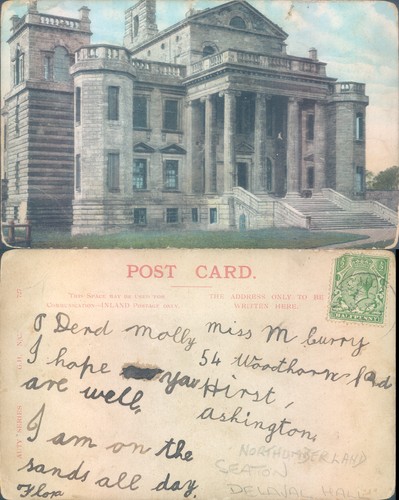 POST CARD.
THIS SPACE MAY BE USED FOR
COMMUNICATION—INLAND POSTAGE ONLY.
THE ADDRESS ONLY TO BE
WRITTEN HERE.
HALFPENNY
Derd Molly
I hope you
are well,
I am on the
sands all day.
Flora
Miss M Curry
54 Woodhorn Rd
Hirst,
Ashington,
NORTHUMBERLAND
SEATON
DELAVAL HALL